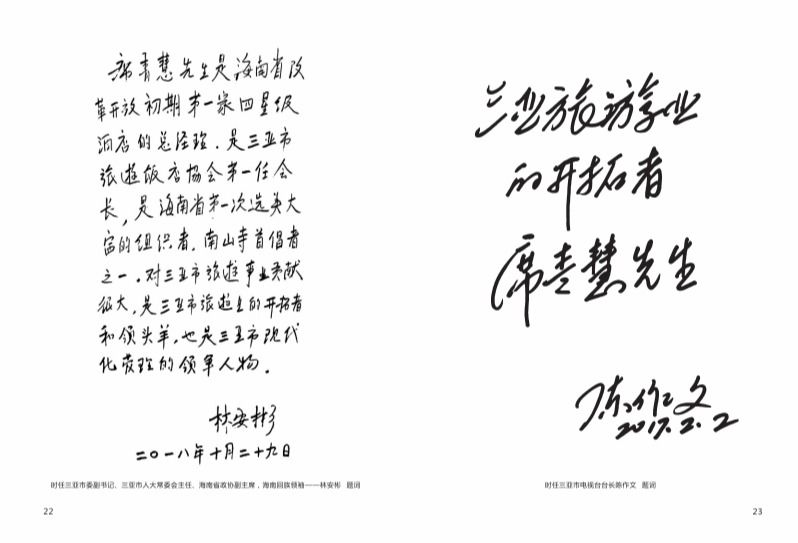 席青慧先生是海南省改
革开放初期第一家四星级
酒店的总经理.是三亚市
旅遊饭店协会第一任会
长,是海南省第一次选美大
富的组织者.南山寺首倡者
之一.对三亚市旅遊事业贡献
很大,是三亚市旅遊业的开拓者
和领头羊,也是三亚市现代
化管理的领军人物.
林安彬
二〇一八年十月二十九日
时任三亚市委副书记、三亚市人大常委会主任、海南省政协副主席，海南回族领袖——林安彬 题词
22
三亚旅游事业
的开拓者
席青慧先生
陈作文
2017.2.2
时任三亚市电视台台长陈作文 题词
23